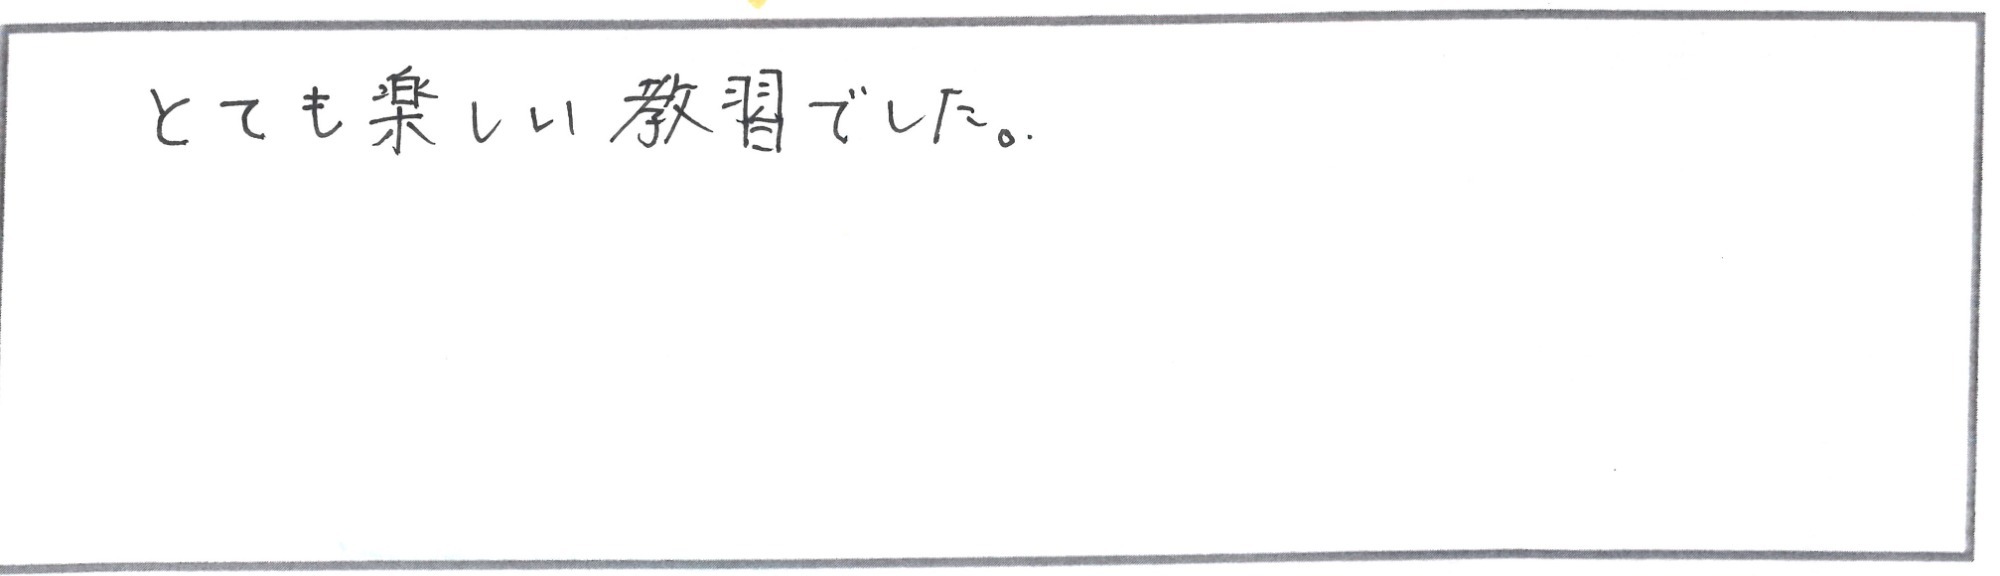 とても楽しい教習でした。